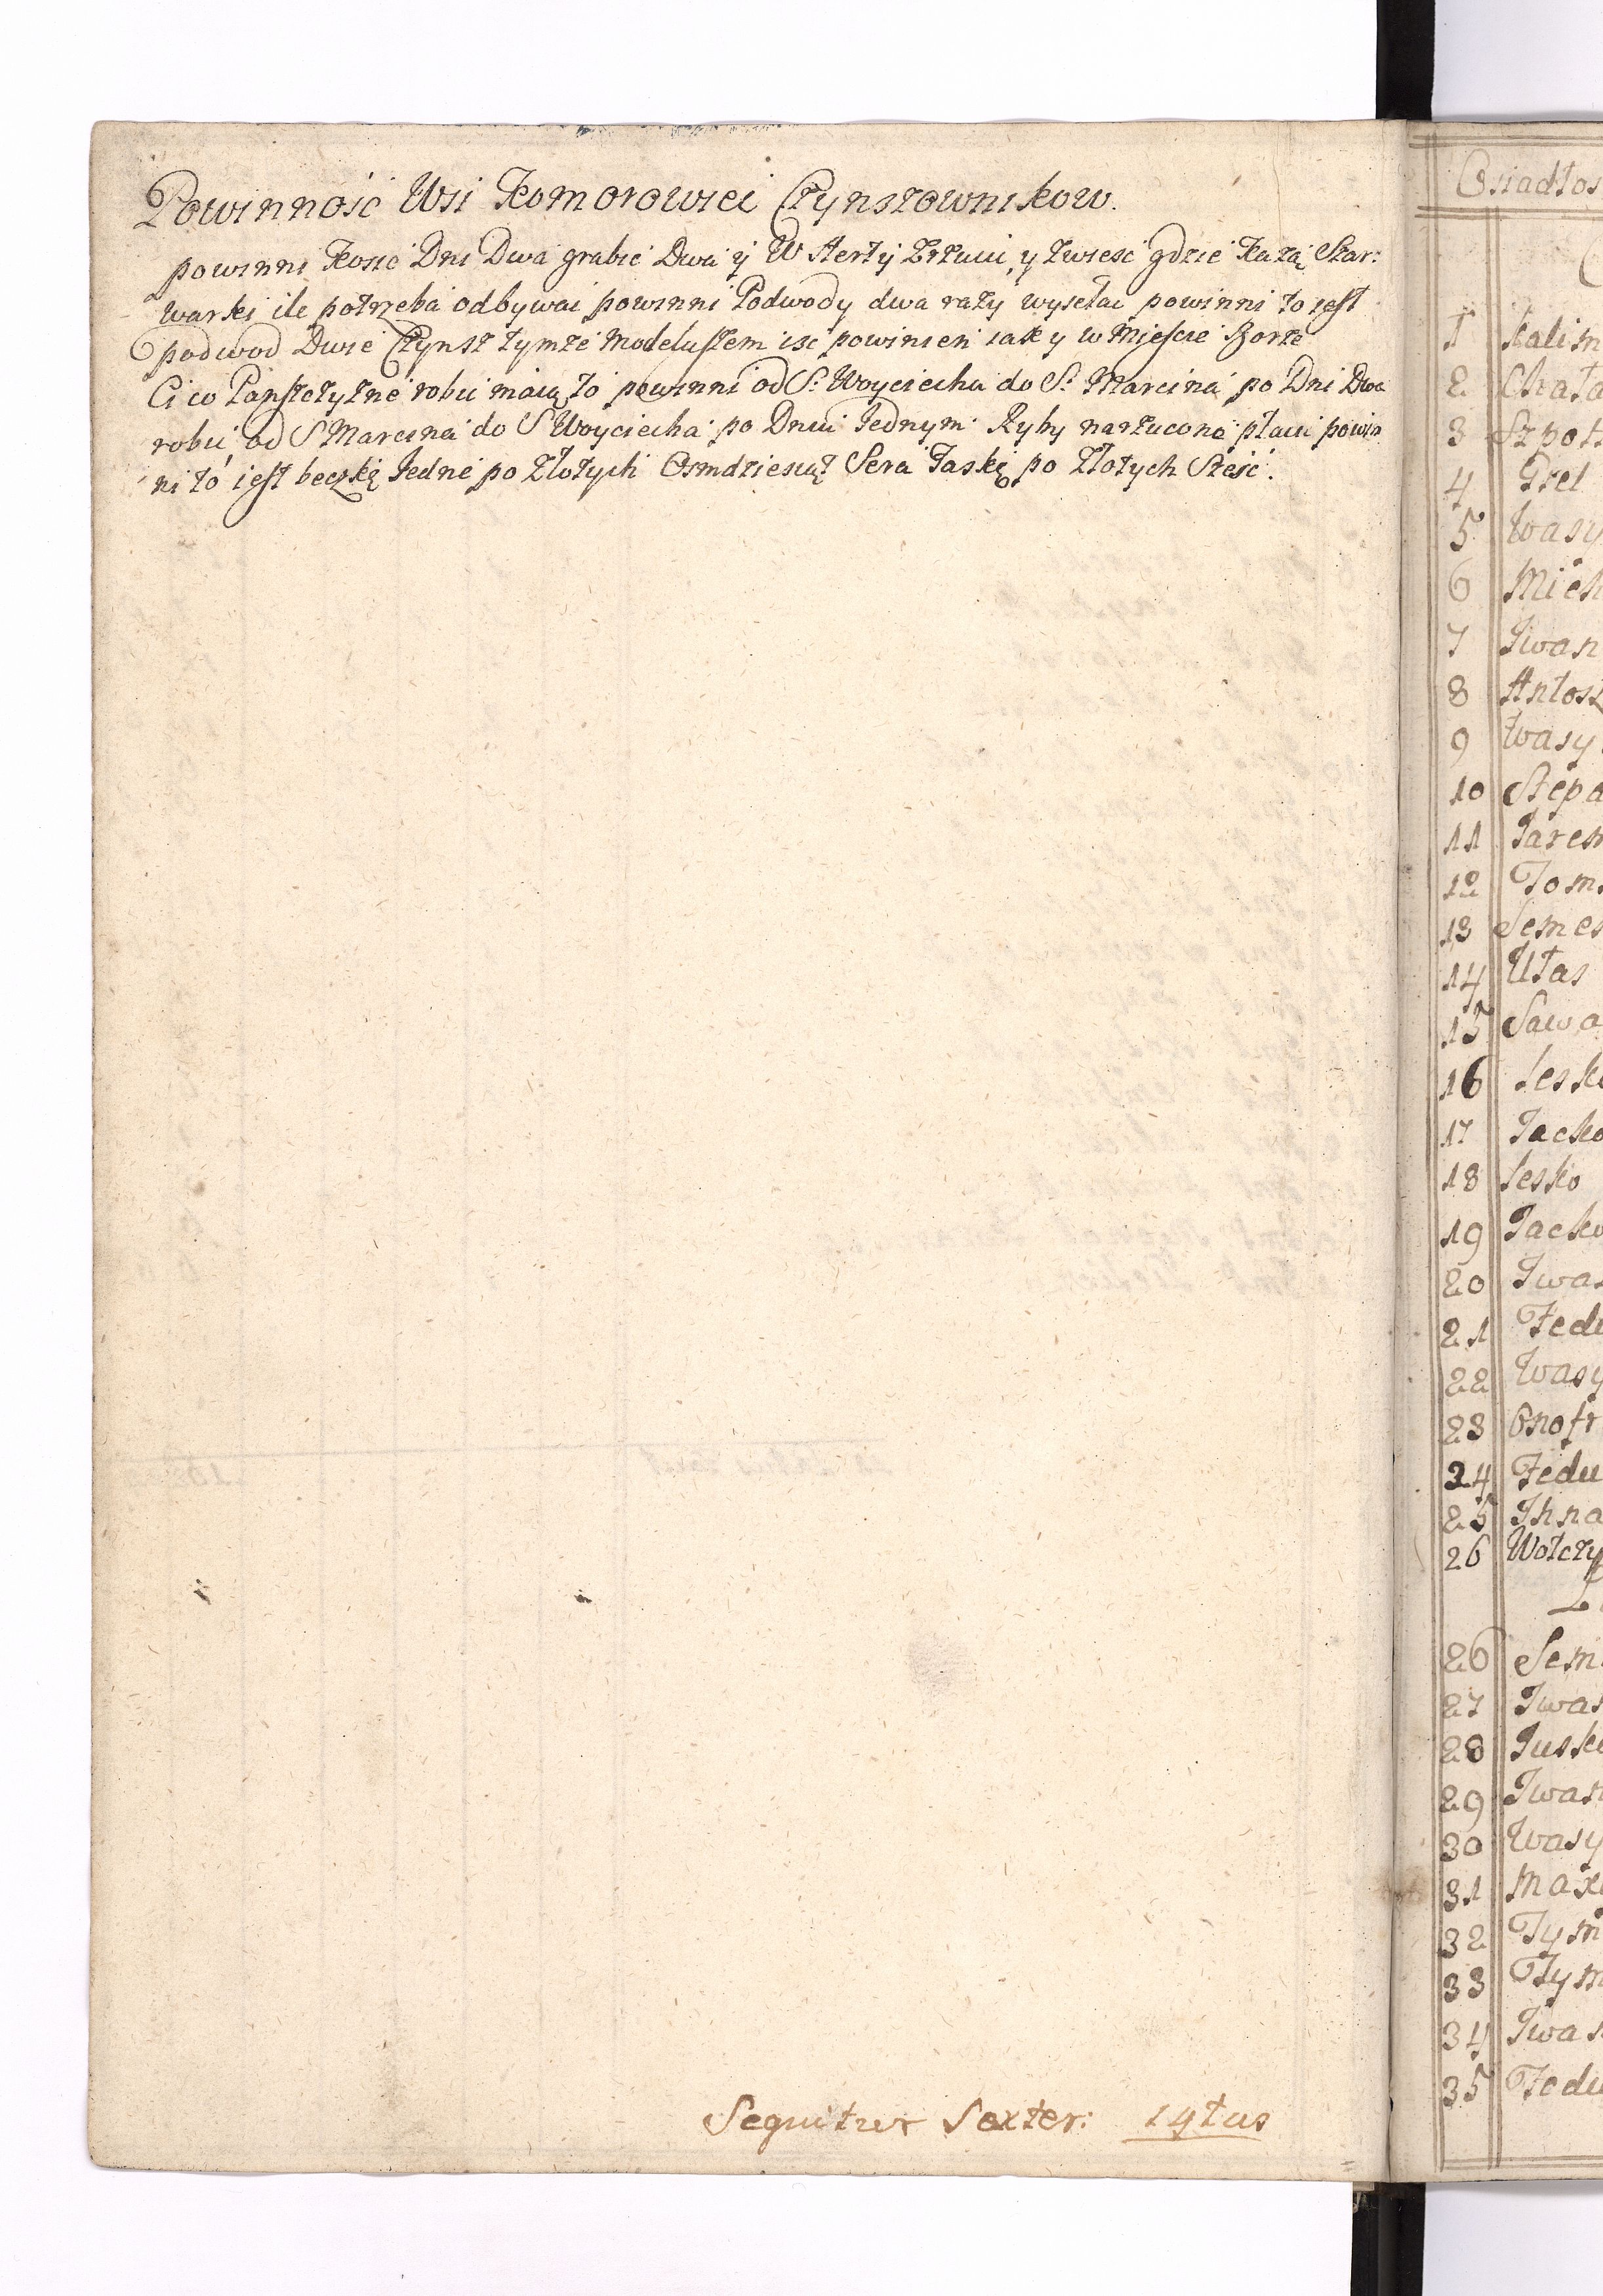 Powinność Wsi Komorowki Czynszownikow.
powinni Kosić Dni Dwa grabić Dwa y W sterty Zrzucić, y zwieść gdzie Każą Szar:
warki ile potrzeba odbywać powinni Podwody dwa razy wysełać powinni to iest
podwod Dwie Czynsz tymże Modeluszem iść powinien iak y w Mieście Borze
Ci co Panszczyznę robić maią to powinni od S: Woyciecha do S: Marcina po Dni Dwa
robić, od S Marcina do S Woyciecha po Dniu Jednym. Ryby narzucone płacić powin
ni to iest beczkę Jedne po Złotych Osmdziesiąt Sera Faskę po Złotych Sześć.
Sequitur Sexter: 14tus
Osiadłos
1 Kalin
2 Chata
3 Szpot
4 Grel
5 Wasy
6 Mich
7 Iwan
8 Antosz
9 Wasy
10 Stepa
11 Jarem
12 Tom
13 Semen
14 Ułas
15 Sawa
16 Lesk
17 Jacko
18 Lesko
19 Jacko
20 Iwas
21 Fedu
22 Wasy
23 Onofr
24 Fedu
25 Ihna
26 Wołczy
26 Sem
27 Iwas
28 Jusk
29 Iwan
30 Wasy
31 Max
32 Tym
33 Tym
34 Iwas
35 Fedu